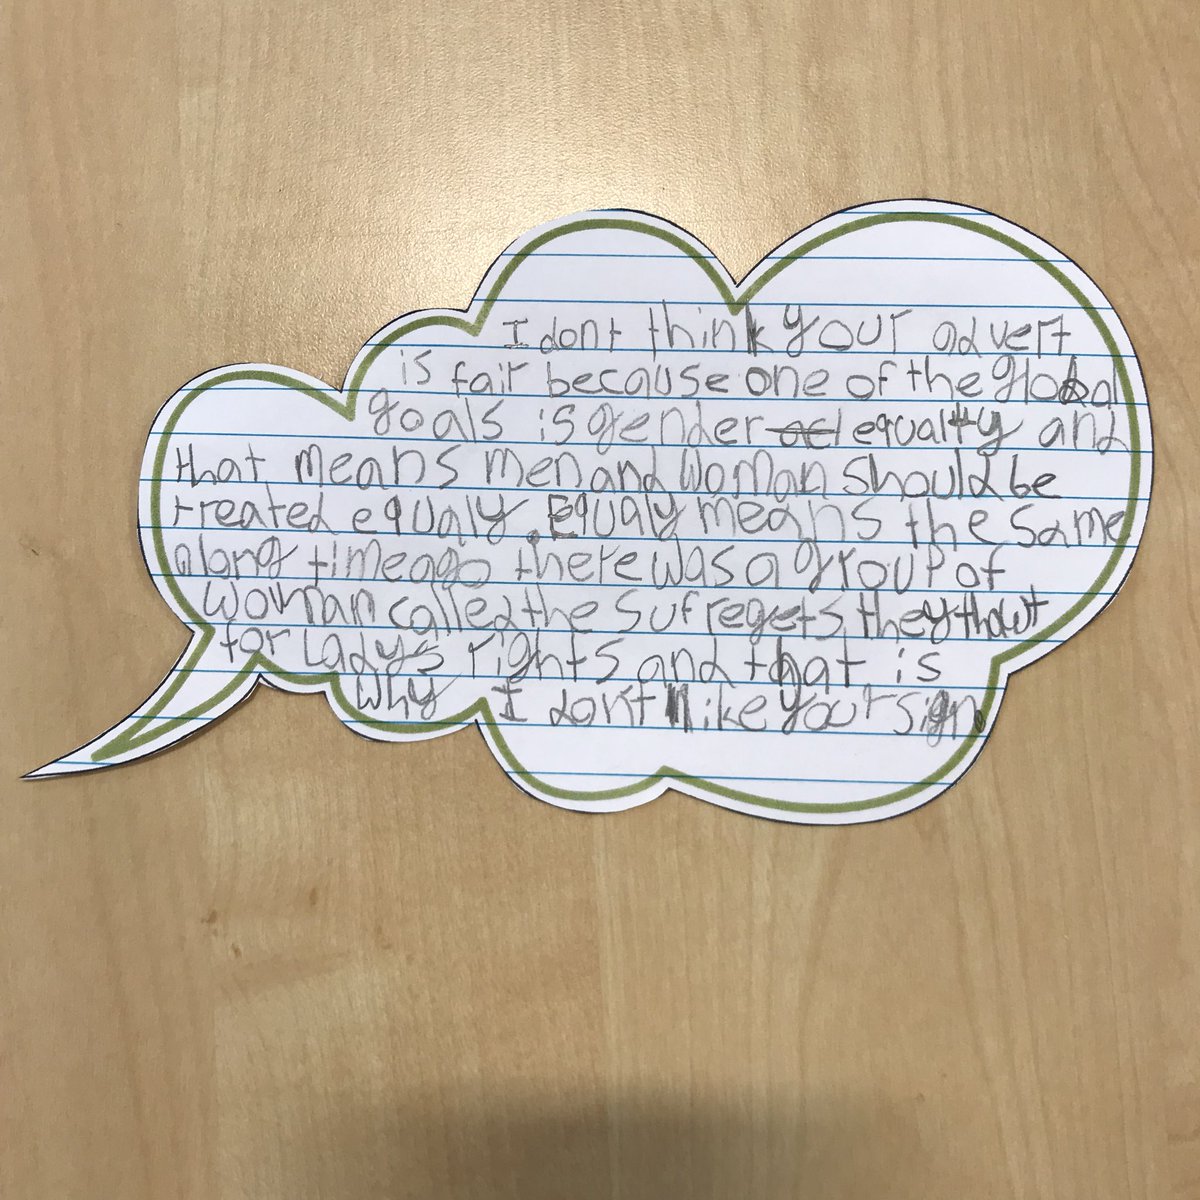 I dont think your advert
is fair because one of the global
goals is gender equalty and
that means men and woman should be
treated equaly. Equaly means the same
along time ago there was a group of
woman called the sufregets they thout
for Ladys rights and that is
why I don't like your sign.